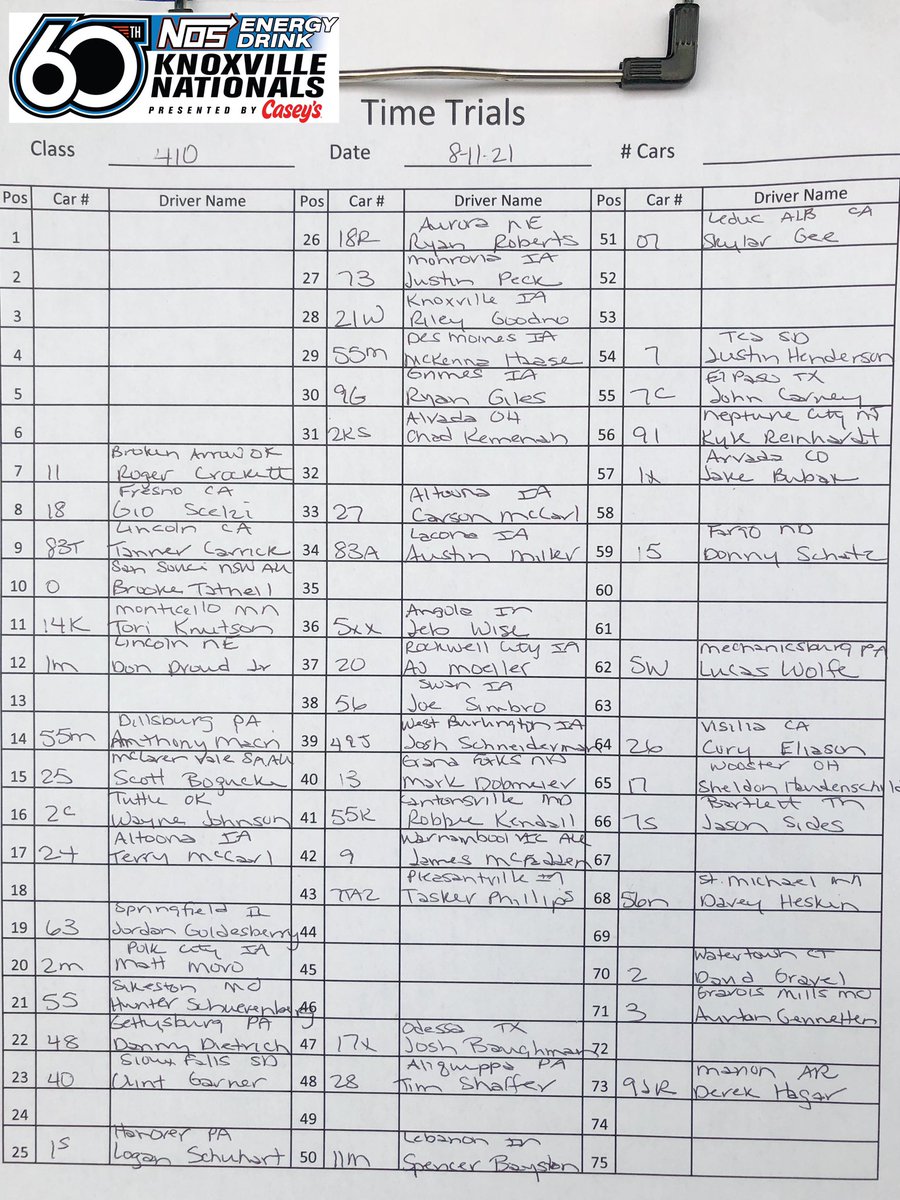 60TH NOS ENERGY DRINK
KNOXVILLE
NATIONALS
PRESENTED BY Casey's
Time Trials
Class 410 Date 8-11-21 # Cars
Pos Car # Driver Name
1
2
3
4
5
6
7 11 Broken Arrow OK
Roger Crockett
8 18 Fresno CA
Gio Scelzi
9 83T Lincoln CA
Tanner Carrick
10 0 San Souci NSW AU
Brooke Tatnell
11 14K Monticello MN
Tori Knutson
12 1m Lincoln NE
Don Droud Jr
13
14 55m Dillsburg PA
Anthony Macri
15 25 McLaren Vale SA AU
Scott Bogucki
16 2C Tuttle OK
Wayne Johnson
17 24 Altoona IA
Terry McCarl
18
19 63 Springfield IL
Jordan Goldesberry
20 2m Polk City IA
Matt Moro
21 55 Sikeston MO
Hunter Schuerenberg
22 48 Gettysburg PA
Danny Dietrich
23 40 Sioux Falls SD
Clint Garner
24
25 1S Hanover PA
Logan Schuhart
Pos Car # Driver Name
26 18R Aurora NE
Ryan Roberts
27 73 Mohrovia IA
Justin Peck
28 21W Knoxville IA
Riley Goodno
29 55m Des Moines IA
McKenna Haase
30 9G Grimes IA
Ryan Giles
31 2KS Alvada OH
Chad Kemenah
32
33 27 Altoona IA
Carson McCarl
34 83A Lacona IA
Austin Miller
35
36 5xx Angola IN
Jeb Wise
37 20 Rockwell City IA
AJ Moeller
38 56 Swan IA
Joe Simbro
39 49J West Burlington IA
Josh Schneiderman
40 13 Grand Forks ND
Mark Dobmeier
41 55K Cantonsville MD
Robbie Kendall
42 9 Warnambool VIC AU
James McFadden
43 TAZ Pleasantville IA
Tasker Phillips
44
45
46
47 17x Odessa TX
Josh Baughman
48 28 Aliquippa PA
Tim Shaffer
49
50 11m Lebanon IN
Spencer Bayston
Pos Car # Driver Name
51 07 Leduc ALB CA
Skylar Gee
52
53
54 7 Tea SD
Justin Henderson
55 7C El Paso TX
John Carney
56 91 Neptune City NJ
Kyle Reinhardt
57 1x Arvada CO
Jake Bubak
58
59 15 Fargo ND
Donny Schatz
60
61
62 5W Mechanicsburg PA
Lucas Wolfe
63
64 26 Visilia CA
Cory Eliason
65 17 Wooster OH
Sheldon Haudenschild
66 7S Bartlett TN
Jason Sides
67
68 56n St. Michael MN
Davey Heskin
69
70 2 Watertown CT
David Gravel
71 3 Gravois Mills MO
Ayrton Gennetten
72
73 9JR Marion AR
Derek Hagar
74
75